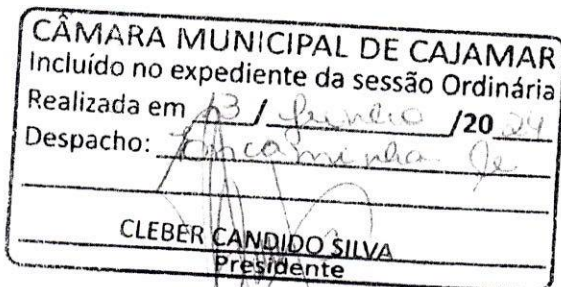 CÂMARA MUNICIPAL DE CAJAMAR
Incluído no expediente da sessão Ordinária
Realizada em / /20 24
Despacho: Encaminha se
CLEBER CANDIDO SILVA
Presidente